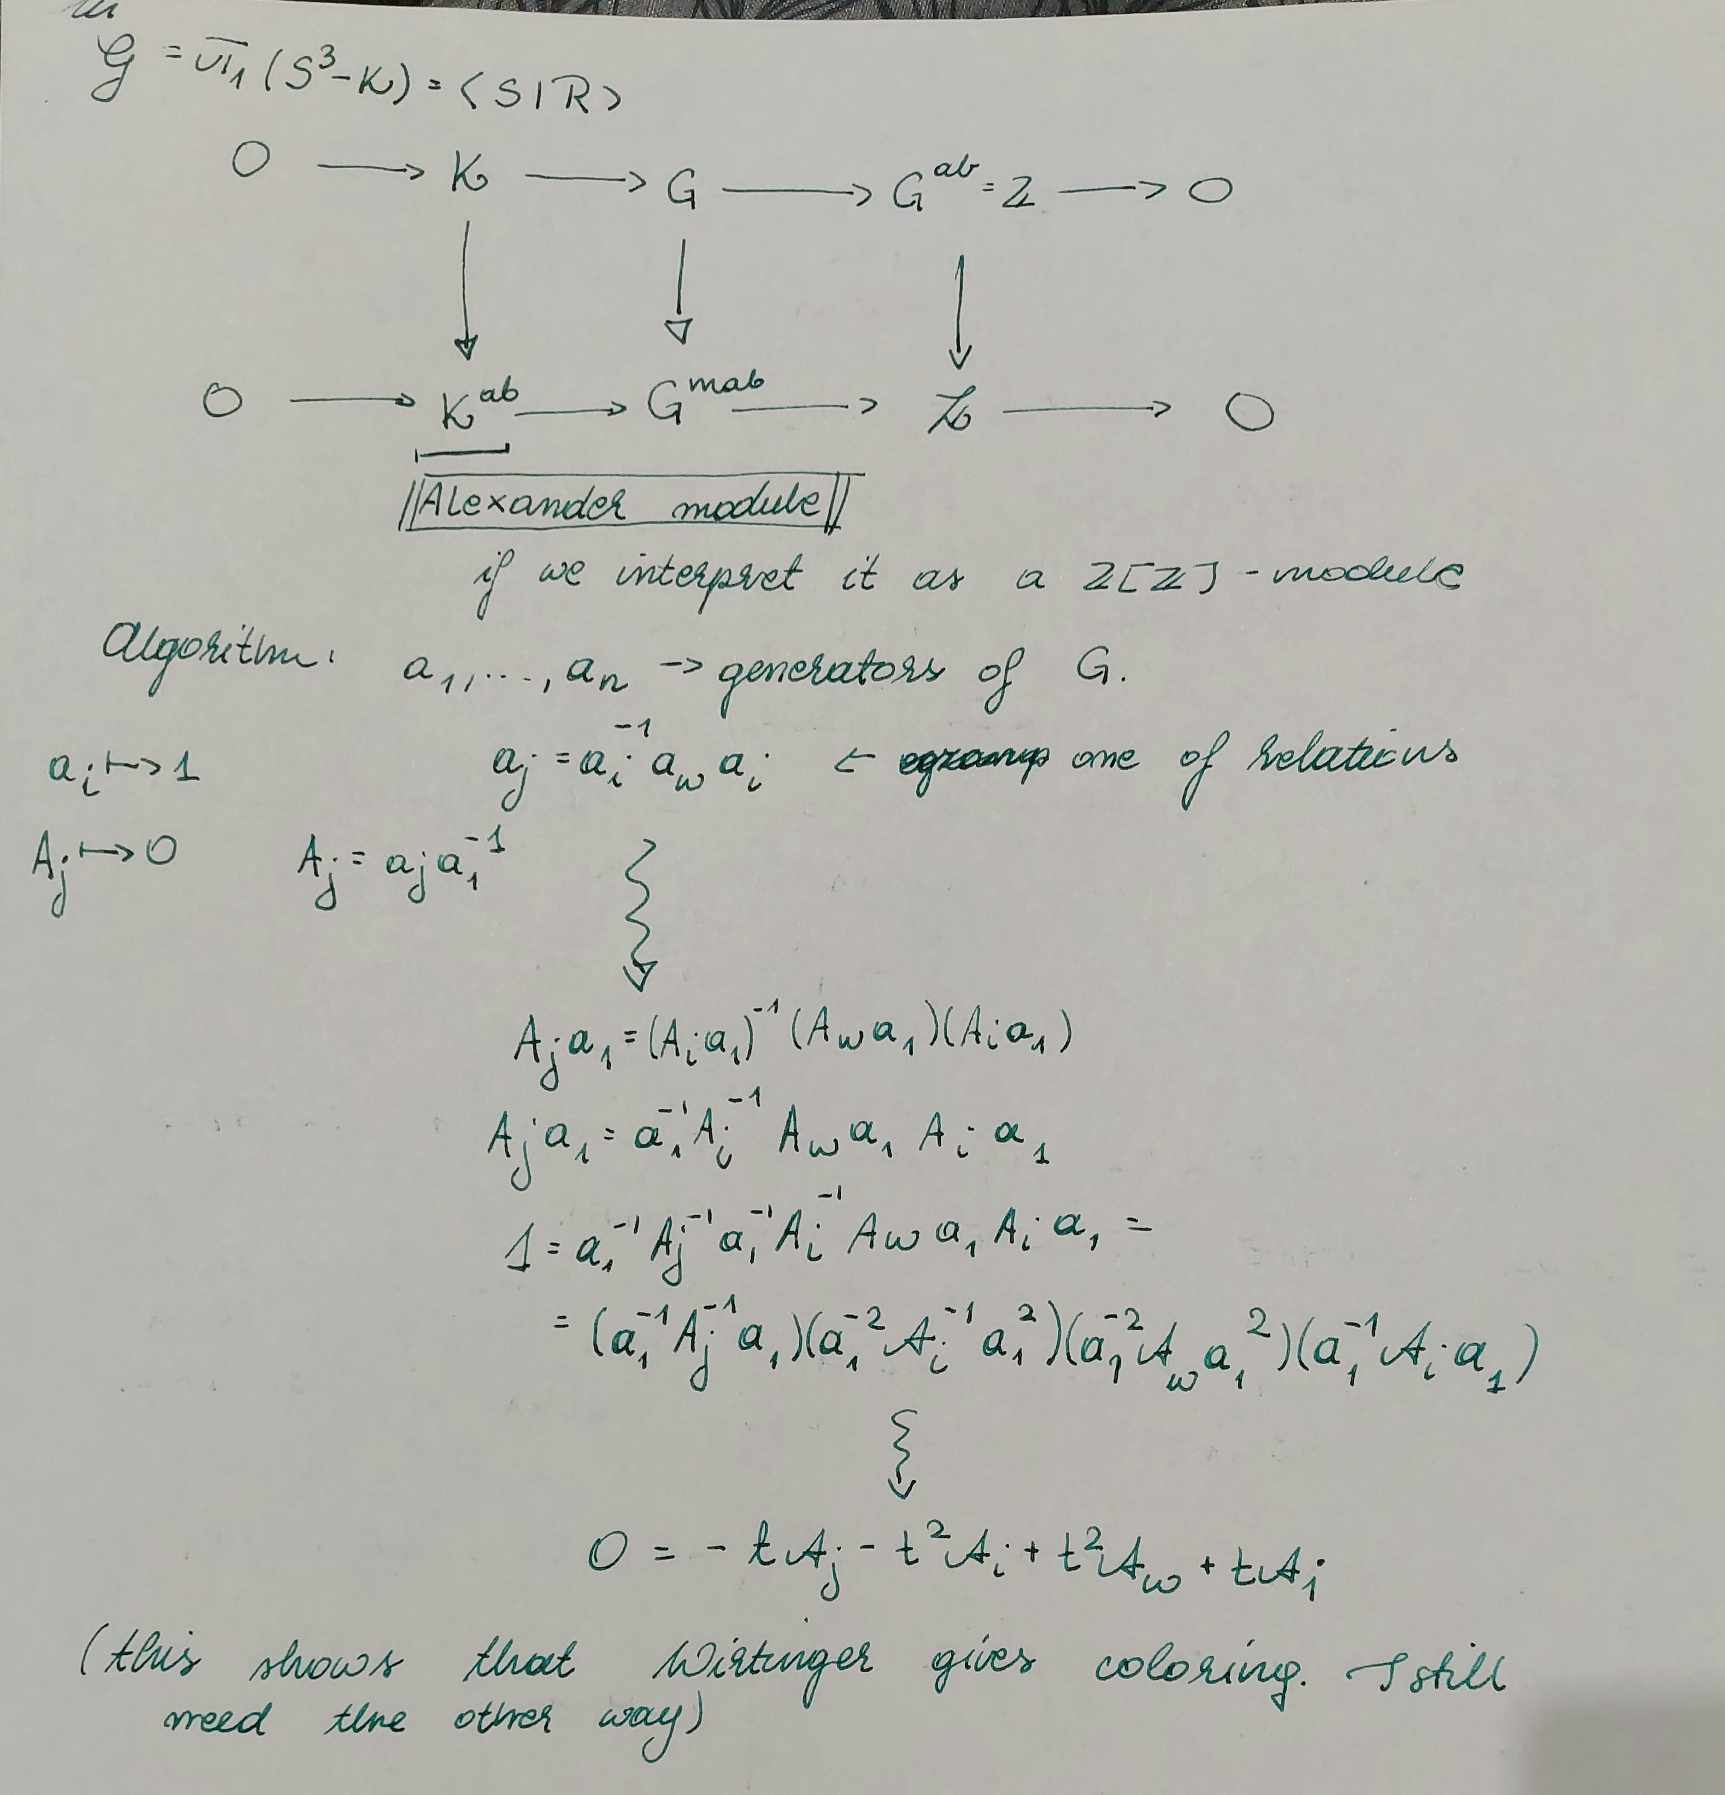 G = π₁(S³-K) = <S|R>
0 → K → G → G^ab = Z → 0
0 → K^ab → G^mab → Z → 0
Alexander module
if we interpret it as a Z[Z] - module
Algorithm: a₁,...,aₙ -> generators of G.
aᵢ ↦ 1 aⱼ = aᵢ⁻¹ a_w aᵢ ← one of relations
Aⱼ ↦ 0 Aⱼ = aⱼ a₁⁻¹
Aⱼa₁ = (Aᵢa₁)⁻¹ (A_w a₁)(Aᵢa₁)
Aⱼa₁ = a₁⁻¹Aᵢ⁻¹ A_w a₁ Aᵢ a₁
1 = a₁⁻¹ Aⱼ⁻¹ a₁⁻¹ Aᵢ⁻¹ A_w a₁ Aᵢ a₁ =
= (a₁⁻¹Aⱼ⁻¹a₁)(a₁⁻²Aᵢ⁻¹a₁²)(a₁⁻²A_w a₁²)(a₁⁻¹Aᵢa₁)
0 = - tAⱼ - t²Aᵢ + t²A_w + tAᵢ
(this shows that Wirtinger gives coloring. I still
need the other way)